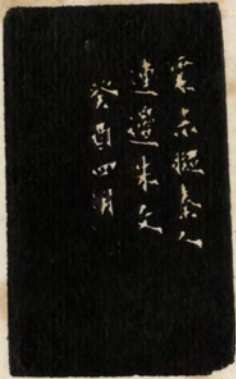 雲赤擬秦人
連邊朱文
癸酉四明